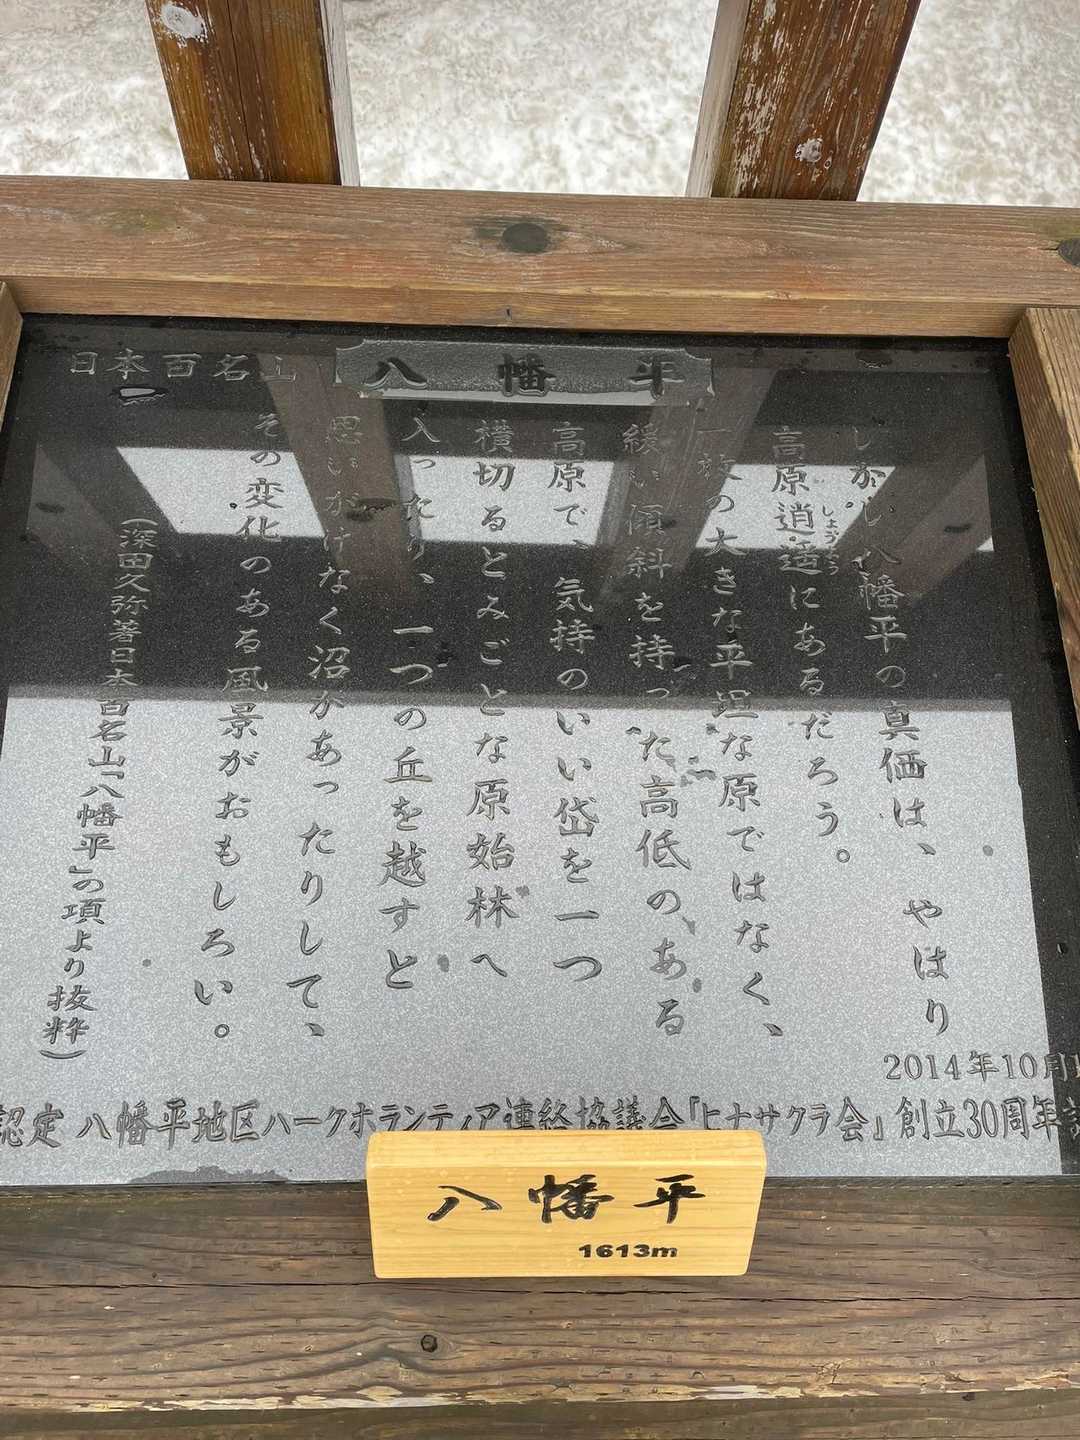 日本百名山 八幡平
しかし八幡平の真価は、やはり
高原逍遥にあるだろう。
しょうよう
一枚の大きな平坦な原ではなく、
緩い傾斜を持った高低の、ある
高原で、気持のいい岱を一つ
横切るとみごとな原始林へ
入ったり、一つの丘を越すと
思いがけなく沼があったりして、
その変化のある風景がおもしろい。
(深田久弥著日本百名山「八幡平」の項より抜粋)
2014年10月
認定 八幡平地区パークボランティア連絡協議会「ヒナザクラ会」創立30周年記
八幡平
1613m